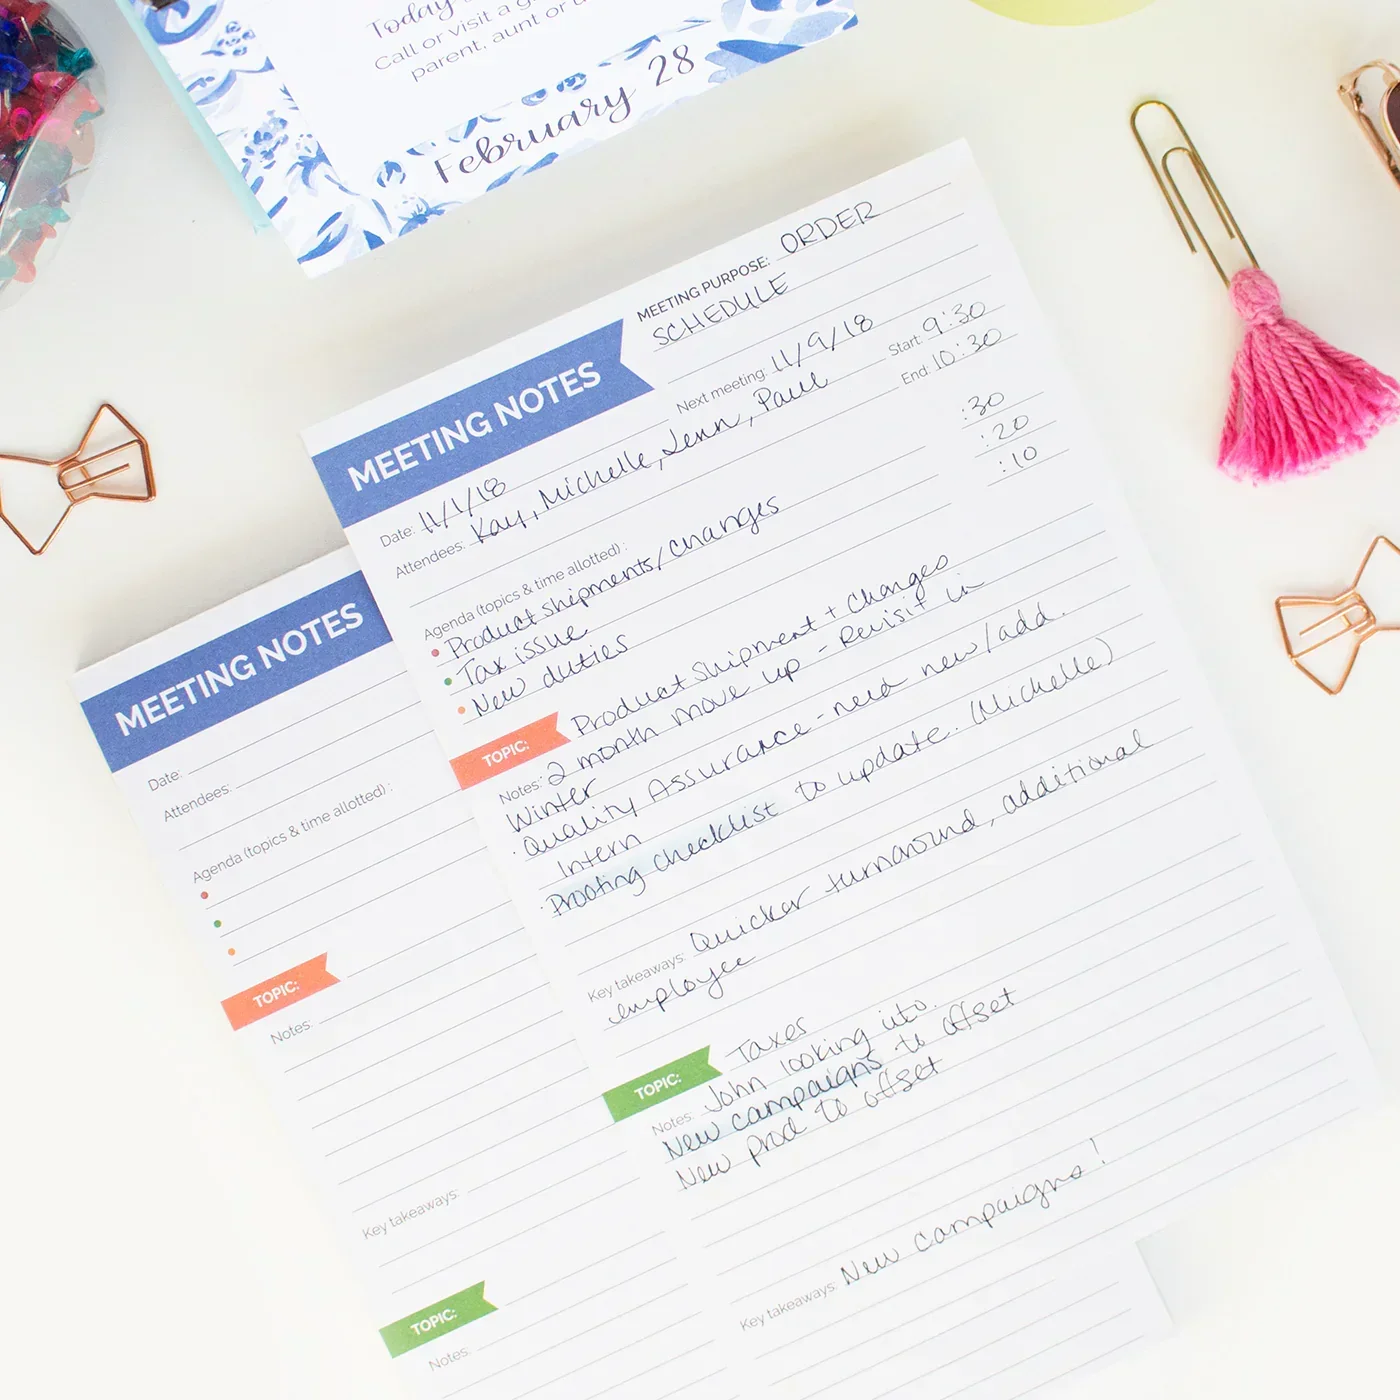 Today
Call or visit a
parent, aunt or
February 28
MEETING NOTES
MEETING PURPOSE: ORDER
SCHEDULE
Next meeting: 11/9/18
Start: 9:30
End: 10:30
Date: 11/1/18
Attendees: Kay, Michelle, Jenn, Paul
Agenda (topics & time allotted) :
Product shipments/changes :30
Tax issue :20
New duties :10
TOPIC: Product shipment + changes
Notes: 2 month move up - Revisit in
Winter
· Quality Assurance - need new/add.
Intern
· Proofing checklist to update. (Michelle)
Key takeaways: Quicker turnaround, additional
employee
TOPIC: Taxes
Notes: John looking into.
New campaigns to offset
New prod to offset
Key takeaways: New Campaigns!
MEETING NOTES
Date:
Attendees:
Agenda (topics & time allotted) :
TOPIC:
Notes:
Key takeaways:
TOPIC:
Notes: